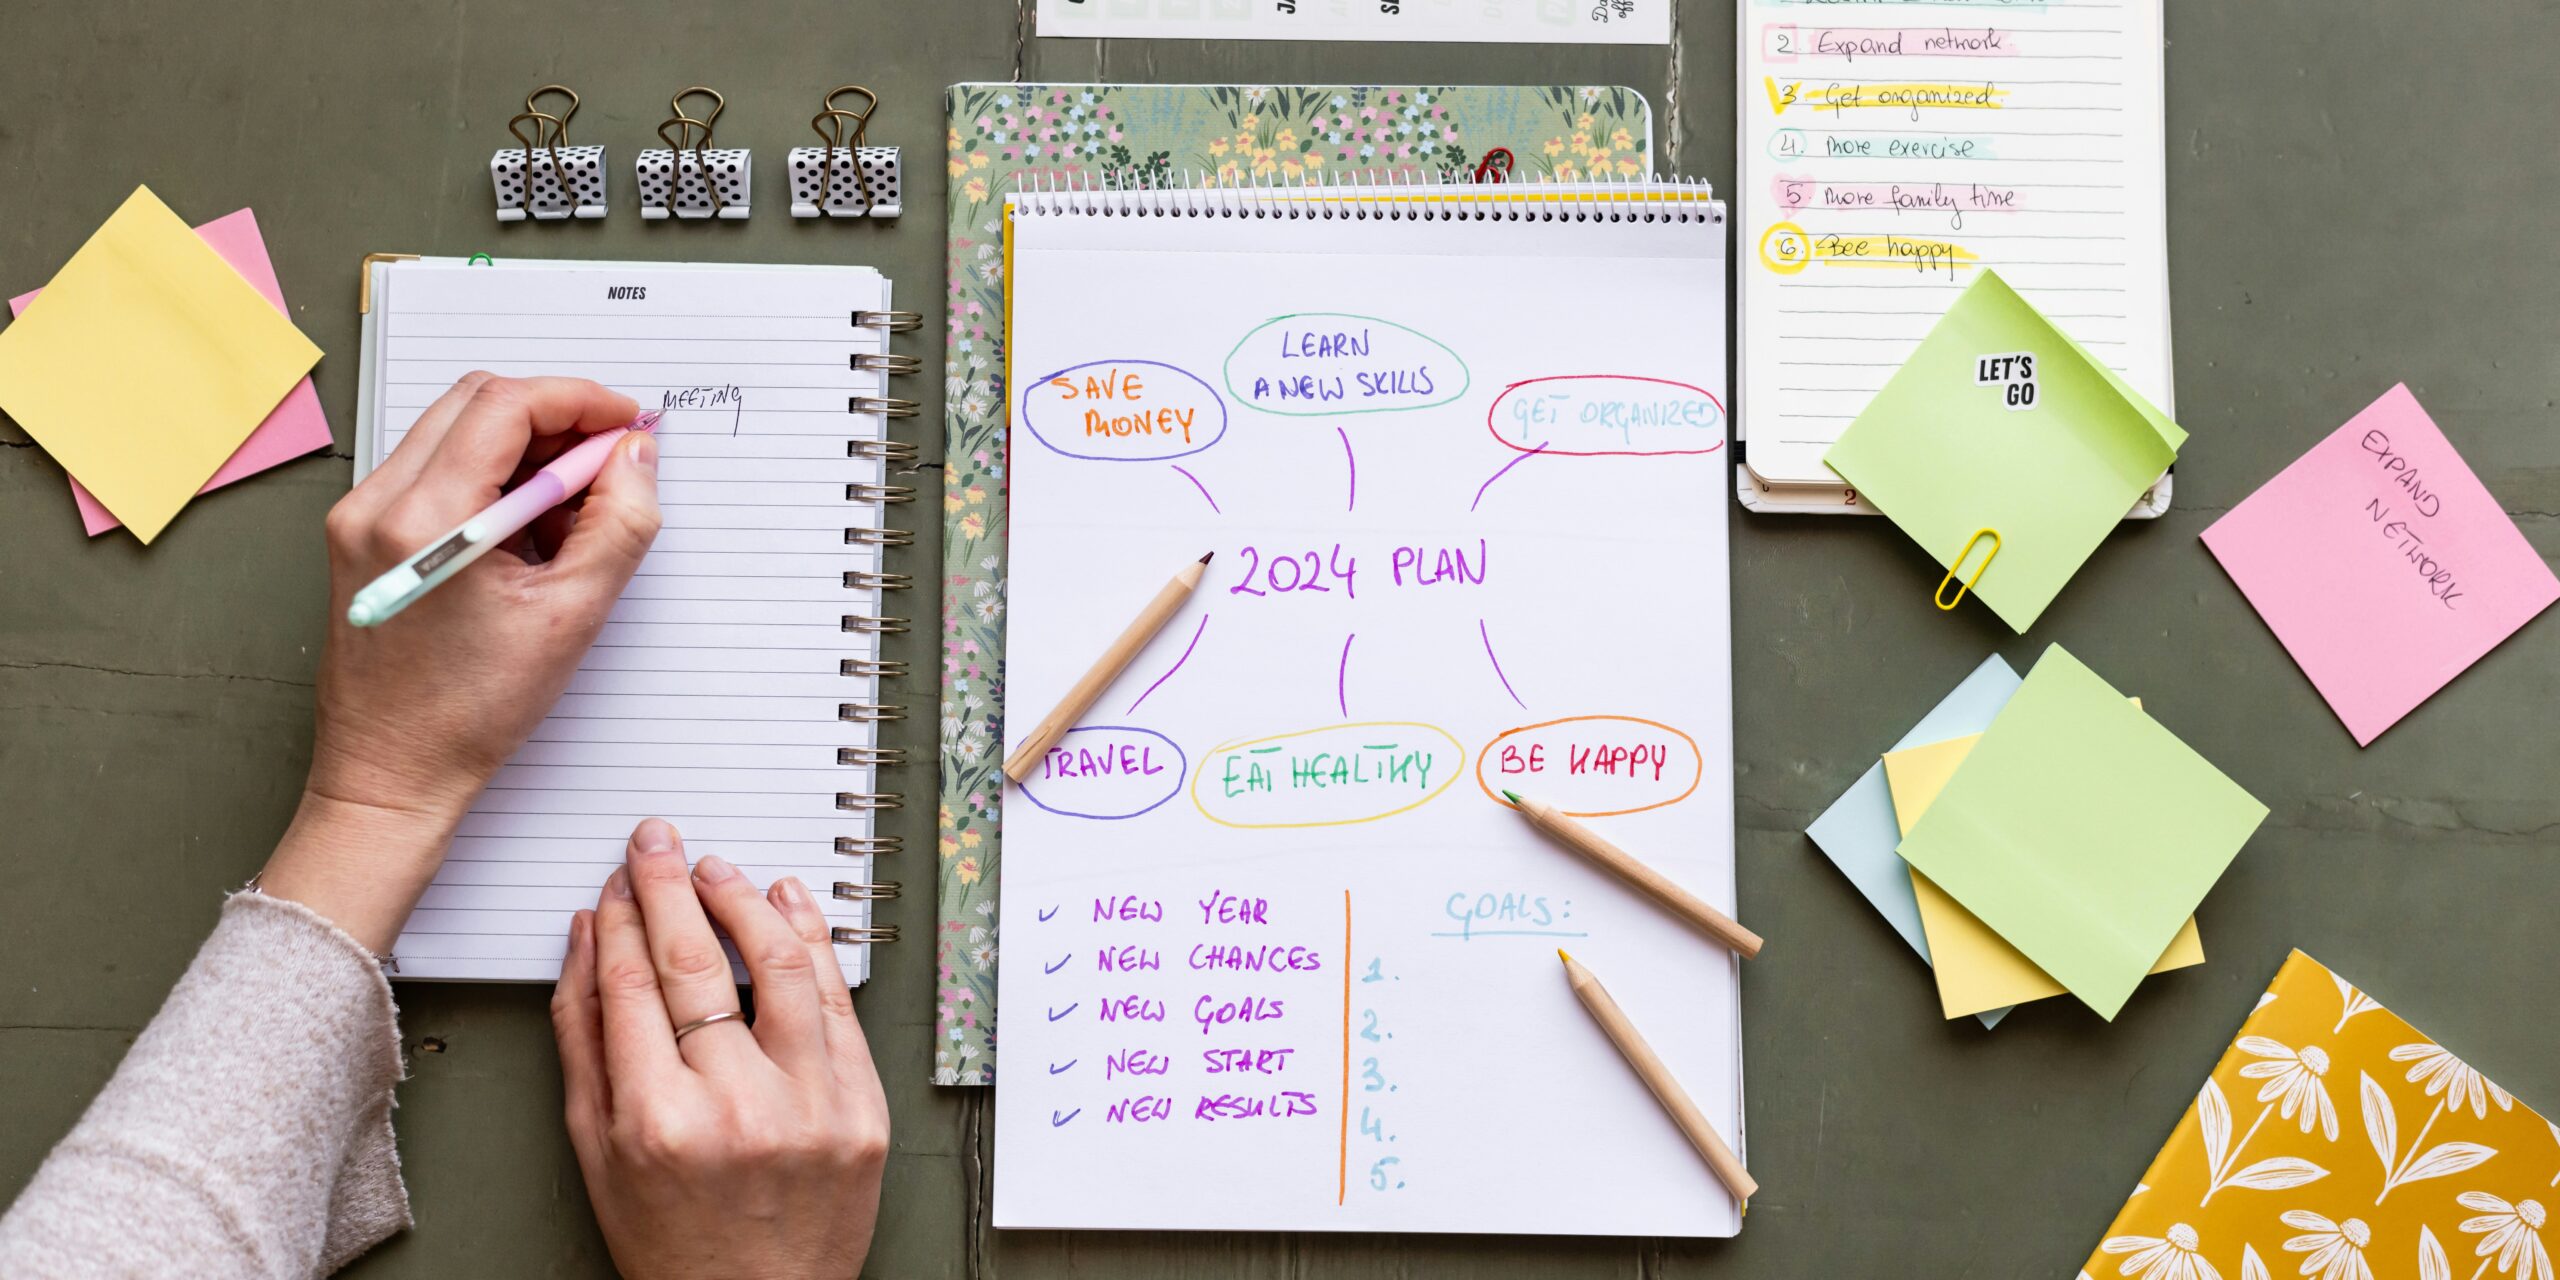 NOTES
MEETING
SAVE
MONEY
LEARN
A NEW SKILLS
GET ORGANIZED
2024 PLAN
TRAVEL
EAT HEALTHY
BE HAPPY
NEW YEAR
NEW CHANCES
NEW GOALS
NEW START
NEW RESULTS
GOALS:
1.
2.
3.
4.
5.
2. Expand network
3. Get organized.
4. more exercise
5. more family time
6. Bee happy
LET'S
GO
2
EXPAND
NETWORK